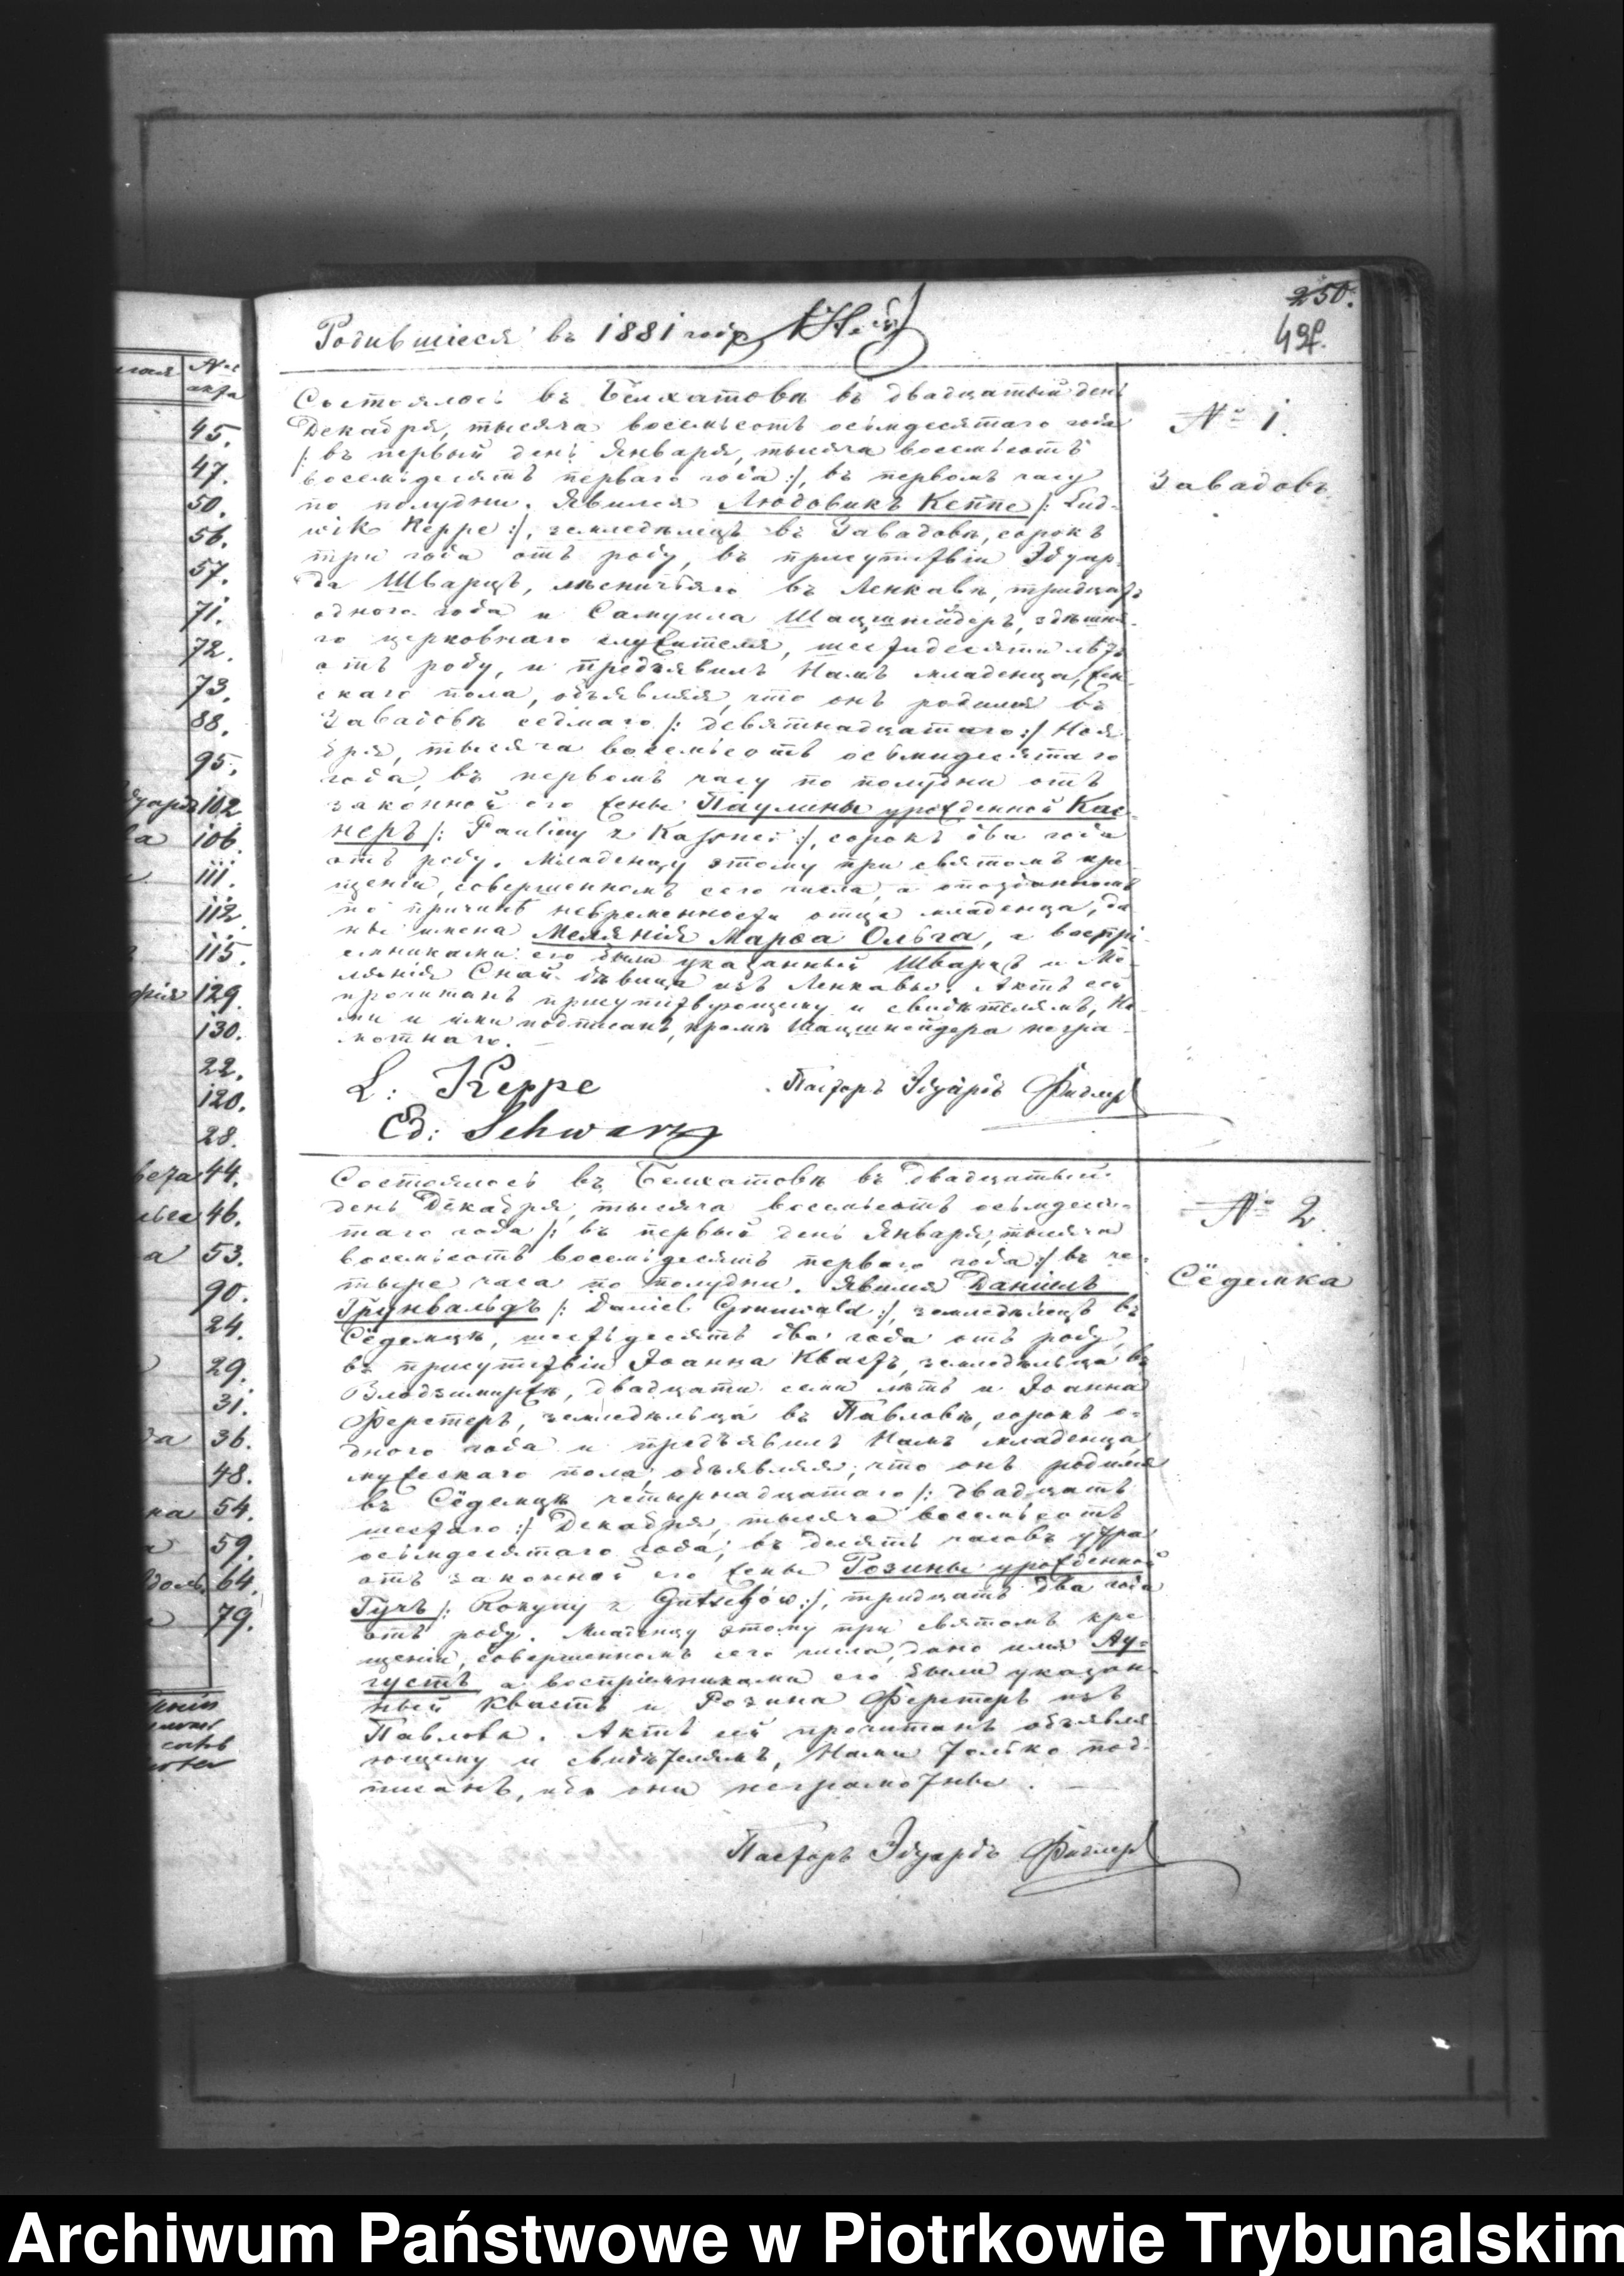 № акта
45.
47.
50.
56.
57.
71.
72.
73.
88.
95.
102
106.
111.
112.
115.
129.
130.
22.
120.
28.
44.
46.
53.
90.
24.
29.
31.
36.
48.
54.
59.
64.
79.
250.
Родившіеся въ 1881 году
Состоялось въ Белхатовѣ въ двадцатый день
Декабря, тысяча восемьсотъ осьмдесятаго года
/: въ первый день Января, тысяча восемьсотъ
восемьдесятъ перваго года :/, въ первомъ часу
по полудни. Явился Людовикъ Кеппе /: Lud-
wik Keppe :/, земледѣлецъ въ Завадовѣ, сорокъ
три года отъ роду, въ присутствіи Эдуар-
да Шварцъ, лѣсничяго въ Ленкавѣ, тридцать
одного года и Самуила Шацшнейдеръ, здѣшня-
го церковнаго служителя, шестидесяти лѣтъ
отъ роду, и предъявилъ Намъ младенца, жен-
скаго пола, объявляя, что онъ родился въ
Завадовѣ седмаго /: девятнадцатаго :/ Ноя-
бря, тысяча восемьсотъ осьмидесятаго
года, въ первомъ часу по полудни отъ
законной его жены Паулины урожденной Кас-
неръ /: Pauliny z Kassner :/, сорокъ два года
отъ роду. Младенцу этому при святомъ кре-
щеніи, совершенномъ сего числа, а опозданномъ
по причинѣ невременности отца младенца, да-
ны имена Меланія Марѳа Ольга, а воспрі-
емниками его были указанный Шварцъ и Ме-
ланія Снай дѣвица изъ Ленкавы. Актъ сей
прочитанъ присутствующему и свидѣтелямъ, На-
ми и ими подписанъ, кромѣ Шацшнейдера негра-
мотнаго.
L: Keppe
Пасторъ Эдуардъ
Ed: Schwarz
№ 1.
Завадовъ
Состоялось въ Белхатовѣ въ двадцатый
день Декабря, тысяча восемьсотъ осьмдеся-
таго года /: въ первый день Января, тысяча
восемьсотъ восемьдесятъ перваго года :/ въ че-
тыре часа по полудни. Явился Даніилъ
Грунвальдъ /: Daniel Grunwald :/, земледѣлецъ въ
Сёдемцѣ, шестьдесятъ два года отъ роду,
въ присутствіи Іоанна Квастъ, земледѣльца въ
Влодзимиржѣ, двадцати семи лѣтъ и Іоанна
Ферстеръ, земледѣльца въ Павловѣ, сорокъ о-
дного года и предъявилъ Намъ младенца
мужескаго пола, объявляя, что онъ родился
въ Сёдемцѣ четырнадцатаго /: двадцать
шестаго :/ Декабря, тысяча восемьсотъ
осьмдесятаго года, въ десять часовъ утра
отъ законной его жены Розины урожденной
Гучъ /: Rozyny z Gutschów :/, тридцать два года
отъ роду. Младенцу этому при святомъ кре-
щеніи, совершенномъ сего числа, дано имя Ау-
густъ, а воспріемниками его были указан-
ный Квастъ и Розина Ферстеръ изъ
Павлова. Актъ сей прочитанъ объявля-
ющему и свидѣтелямъ, Нами только под-
писанъ, ибо они неграмотны.
Пасторъ Эдуардъ
№ 2.
Сёдемка
Archiwum Państwowe w Piotrkowie Trybunalskim